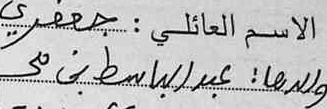 الاسم العائلي : جعفري
والدها : عبد الباسط بن